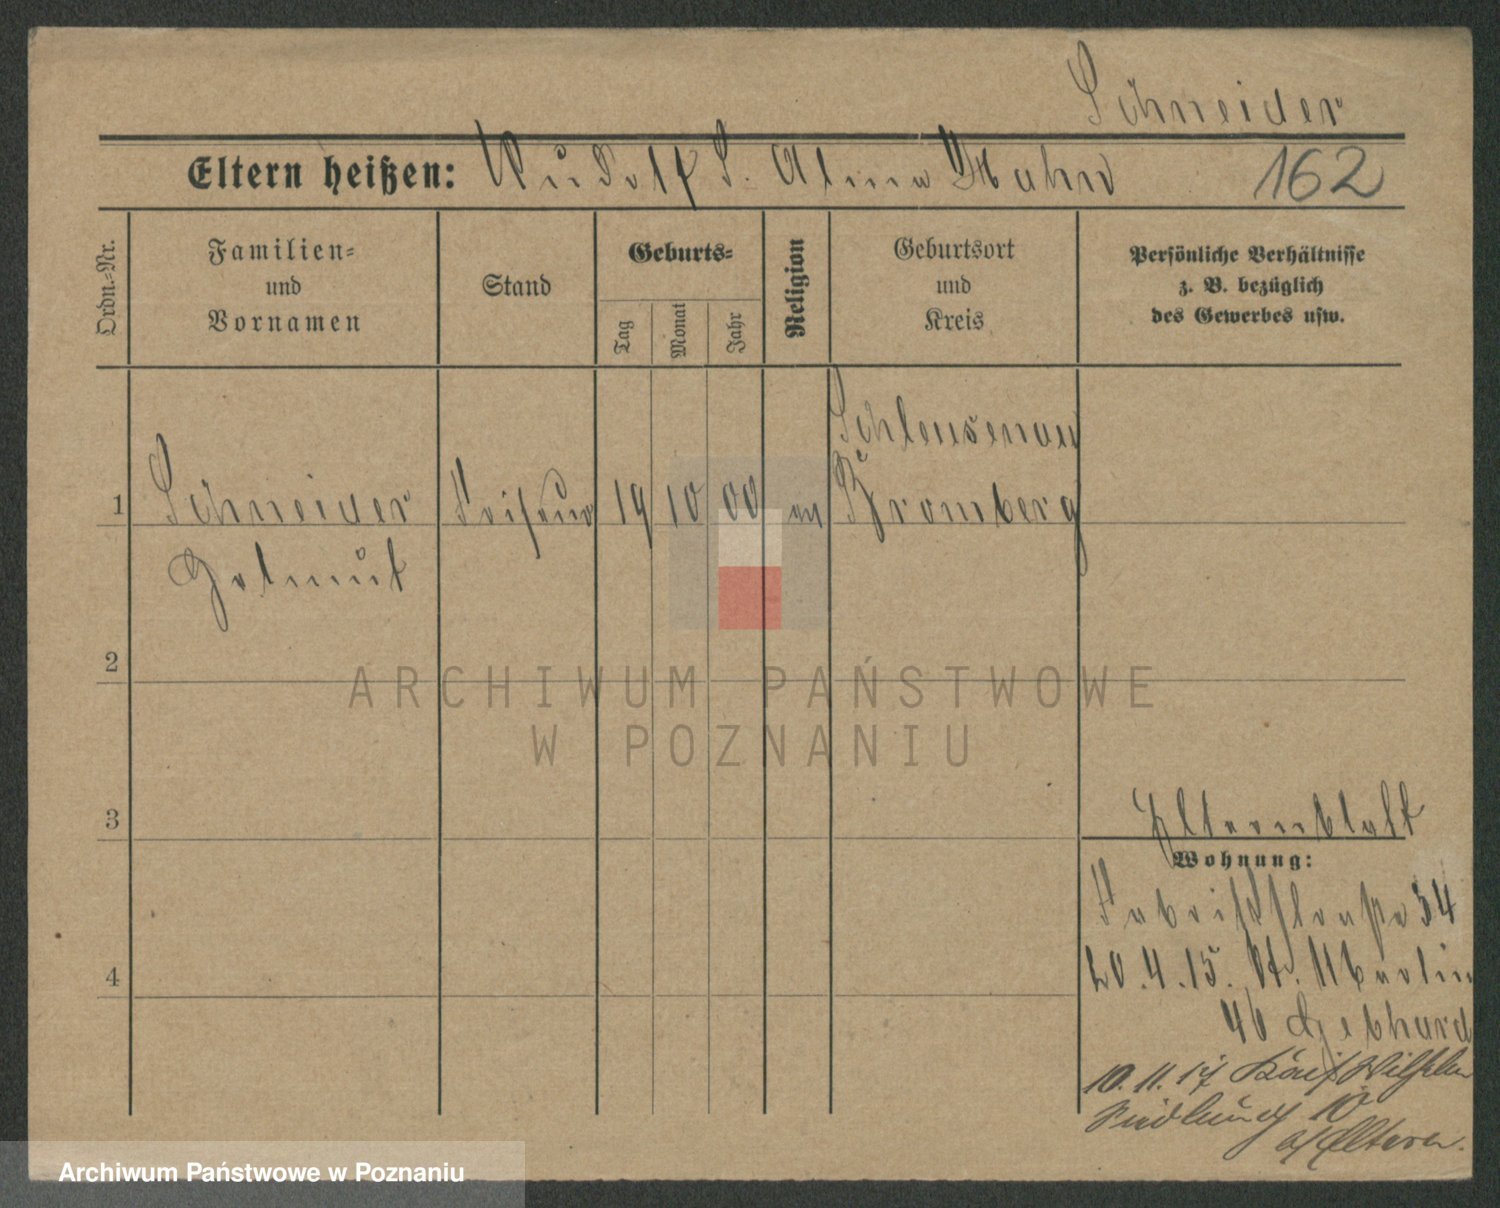 Schneider
Eltern heißen: Rudolf S. Alma Hahn 162
Ordn.-Nr.
Familien-
und
Vornamen
Stand
Geburts-
Tag
Monat
Jahr
Religion
Geburtsort
und
Kreis
Persönliche Verhältnisse
z. B. bezüglich
des Gewerbes usw.
Schleusenau
1 Schneider 19 10 00 ev Bromberg
Helmut
2
ARCHIWUM PAŃSTWOWE
W POZNANIU
3
Elternblatt
Wohnung:
Fabrikstraße 34
4
20.4.15. Berlin
46 Gebhard
10.11.17 Wilhelm
Siedlung 10
a/ Eltern.
Archiwum Państwowe w Poznaniu